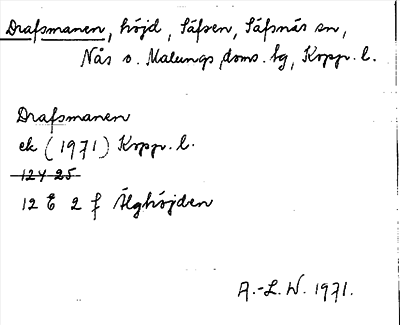 Drafsmanen, höjd, Säfsen, Säfsnäs sn,
Nås o. Malungs doms. hg, Kopp. l.
Drafsmanen
ek (1971) Kopp. l.
12Y 25
12 E 2 f Älghöjden
A.-L. W. 1971.